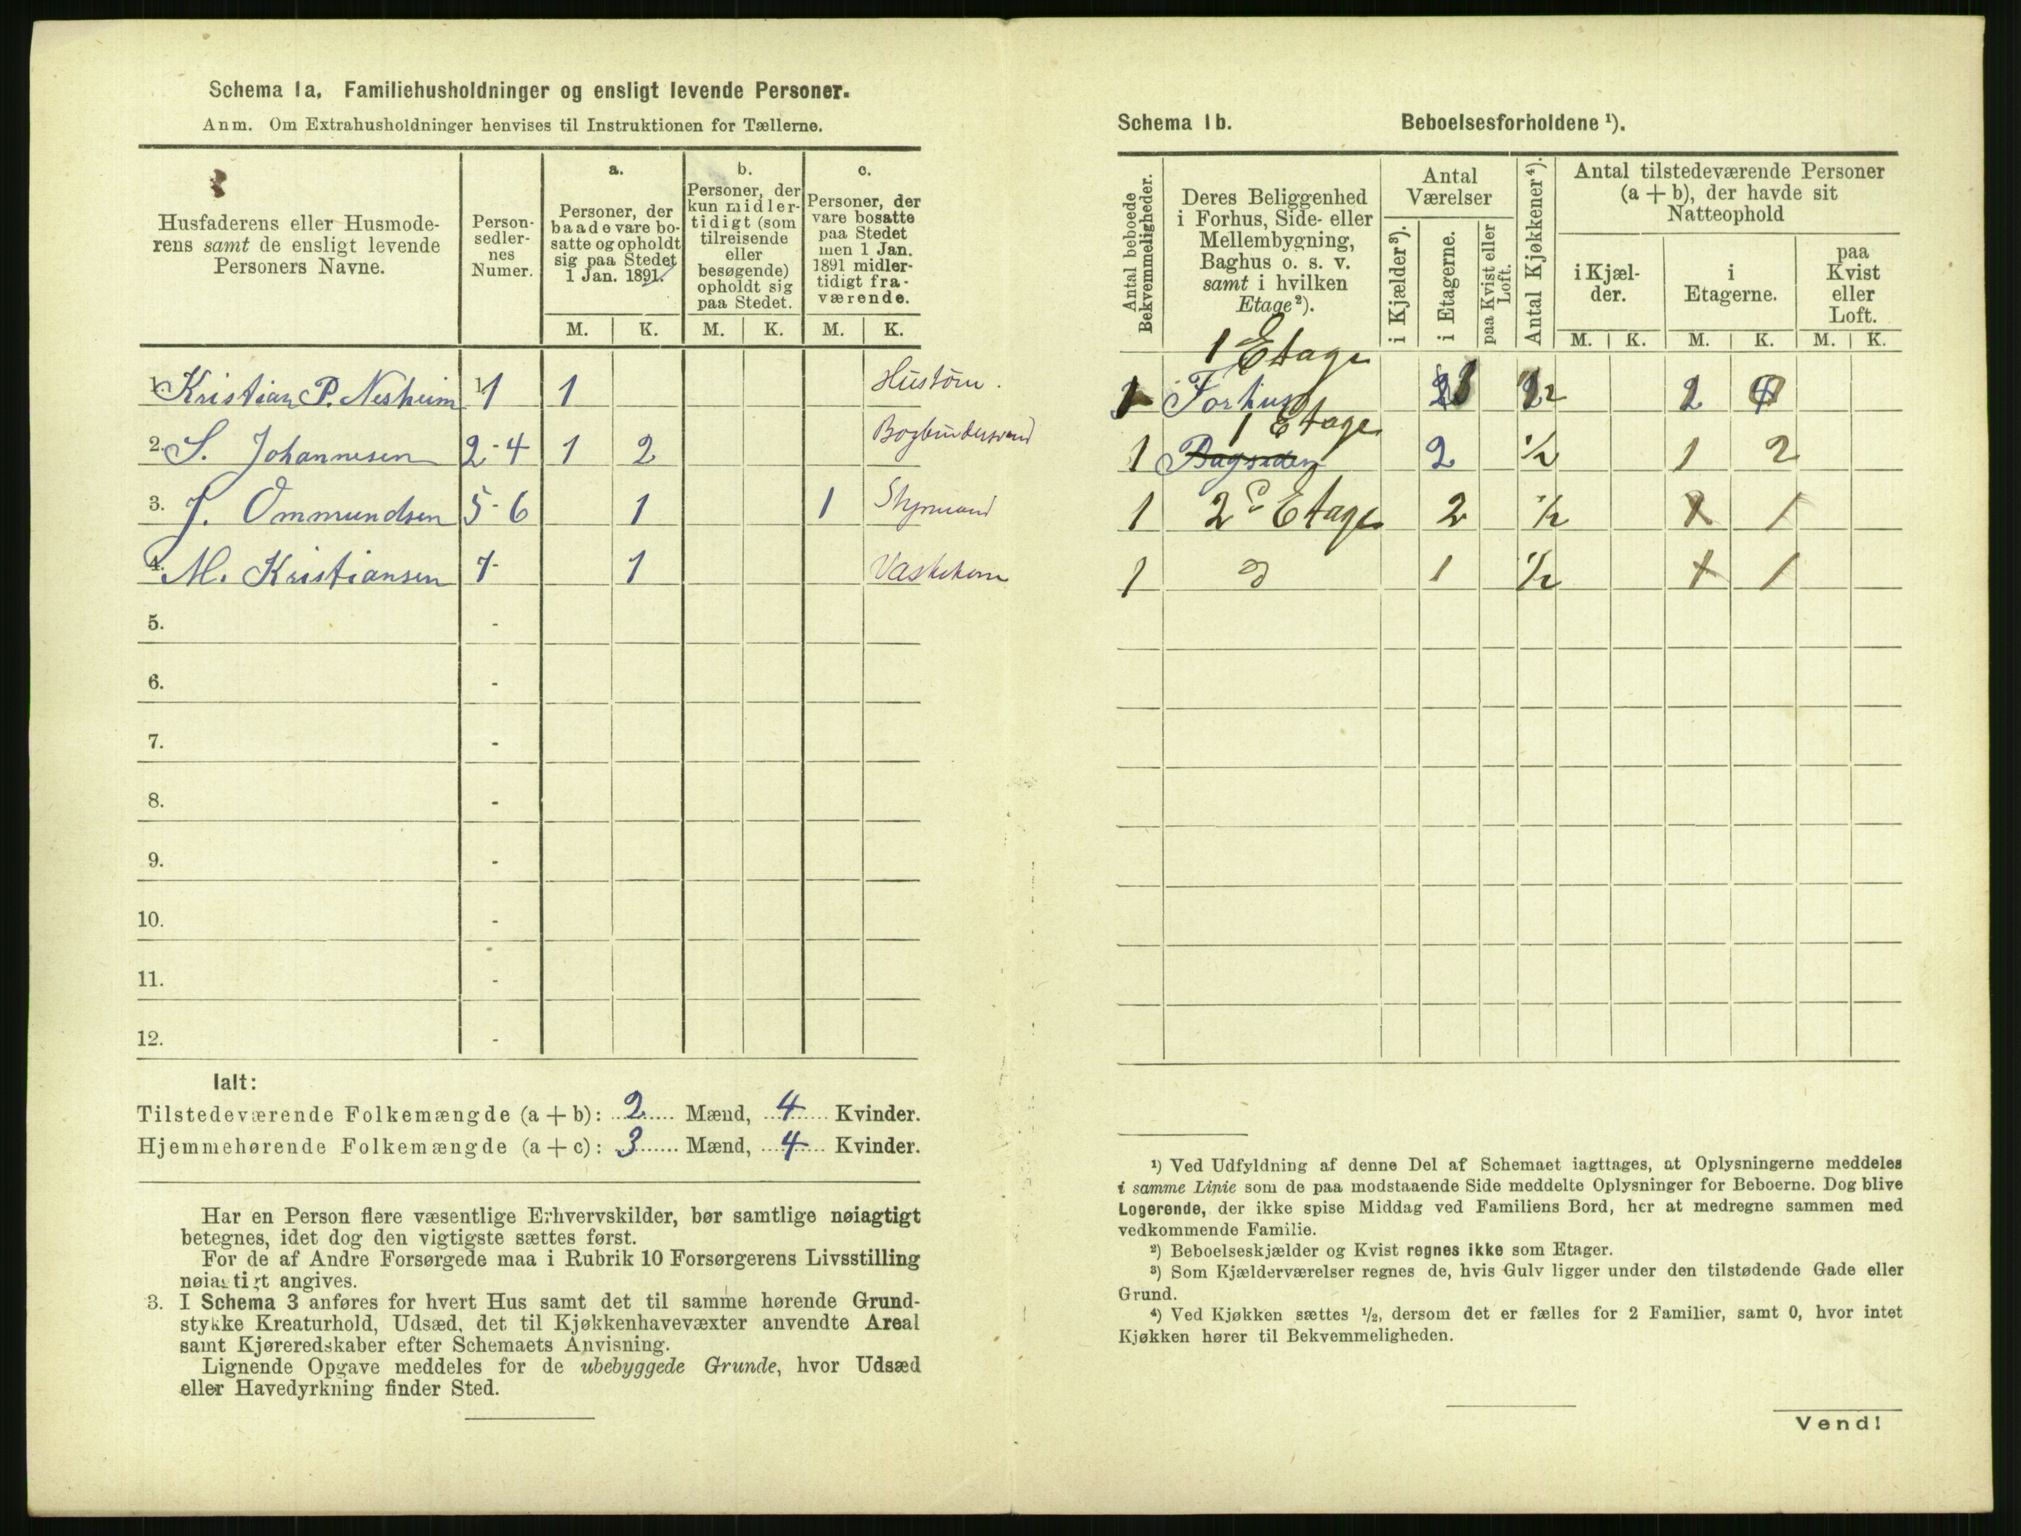 Schema 1a. Familiehusholdninger og ensligt levende Personer.
Anm. Om Extrahusholdninger henvises til Instruktionen for Tællerne.
Husfaderens eller Husmode-
rens samt de ensligt levende
Personers Navne.
Person-
sedler-
nes
Numer.
a.
Personer, der
baade vare bo-
satte og opholdt
sig paa Stedet
1 Jan. 1891.
b.
Personer, der
kun midler-
tidigt (som
tilreisende
eller
besøgende)
opholdt sig
paa Stedet.
c.
Personer, der
vare bosatte
paa Stedet
men 1 Jan.
1891 midler-
tidigt fra-
værende.
M. K. M. K. M. K.
1. Kristian P. Nesheim 1 1 Hustøm.
2. S. Johannesen 2-4 1 2
3. J. Ommundsen 5-6 1 1 Styrmand
4. M. Kristiansen 7- 1 Vaskekone
5. -
6. -
7. -
8. -
9. -
10. -
11. -
12. -
Ialt:
Tilstedeværende Folkemængde (a + b): 2 Mænd, 4 Kvinder.
Hjemmehørende Folkemængde (a + c): 3 Mænd, 4 Kvinder.
Har en Person flere væsentlige Erhvervskilder, bør samtlige nøiagtigt
betegnes, idet dog den vigtigste sættes først.
For de af Andre Forsørgede maa i Rubrik 10 Forsørgerens Livsstilling
nøiagtigt angives.
3. I Schema 3 anføres for hvert Hus samt det til samme hørende Grund-
stykke Kreaturhold, Udsæd, det til Kjøkkenhavevæxter anvendte Areal
samt Kjøreredskaber efter Schemaets Anvisning.
Lignende Opgave meddeles for de ubebyggede Grunde, hvor Udsæd
eller Havedyrkning finder Sted.
Schema 1b. Beboelsesforholdene ¹).
Antal beboede
Bekvemmeligheder.
Deres Beliggenhed
i Forhus, Side- eller
Mellembygning,
Baghus o. s. v.
samt i hvilken
Etage ²).
Antal
Værelser
i Kjælder ³).
i Etagerne.
paa Kvist eller
Loft.
Antal Kjøkkener ⁴).
Antal tilstedeværende Personer
(a + b), der havde sit
Natteophold
i Kjæl-
der.
i
Etagerne.
paa
Kvist
eller
Loft.
M. K. M. K. M. K.
1 Etage
1 Forhus
1 Etage
1 Bagsiden 2 ½ 1 2
1 2d Etage 2 ½ 1 1
1 d 1 ½ 1 1
¹) Ved Udfyldning af denne Del af Schemaet iagttages, at Oplysningerne meddeles
i samme Linie som de paa modstaaende Side meddelte Oplysninger for Beboerne. Dog blive
Logerende, der ikke spise Middag ved Familiens Bord, her at medregne sammen med
vedkommende Familie.
²) Beboelseskjælder og Kvist regnes ikke som Etager.
³) Som Kjælderværelser regnes de, hvis Gulv ligger under den tilstødende Gade eller
Grund.
⁴) Ved Kjøkken sættes ½, dersom det er fælles for 2 Familier, samt 0, hvor intet
Kjøkken hører til Bekvemmeligheden.
Vend!